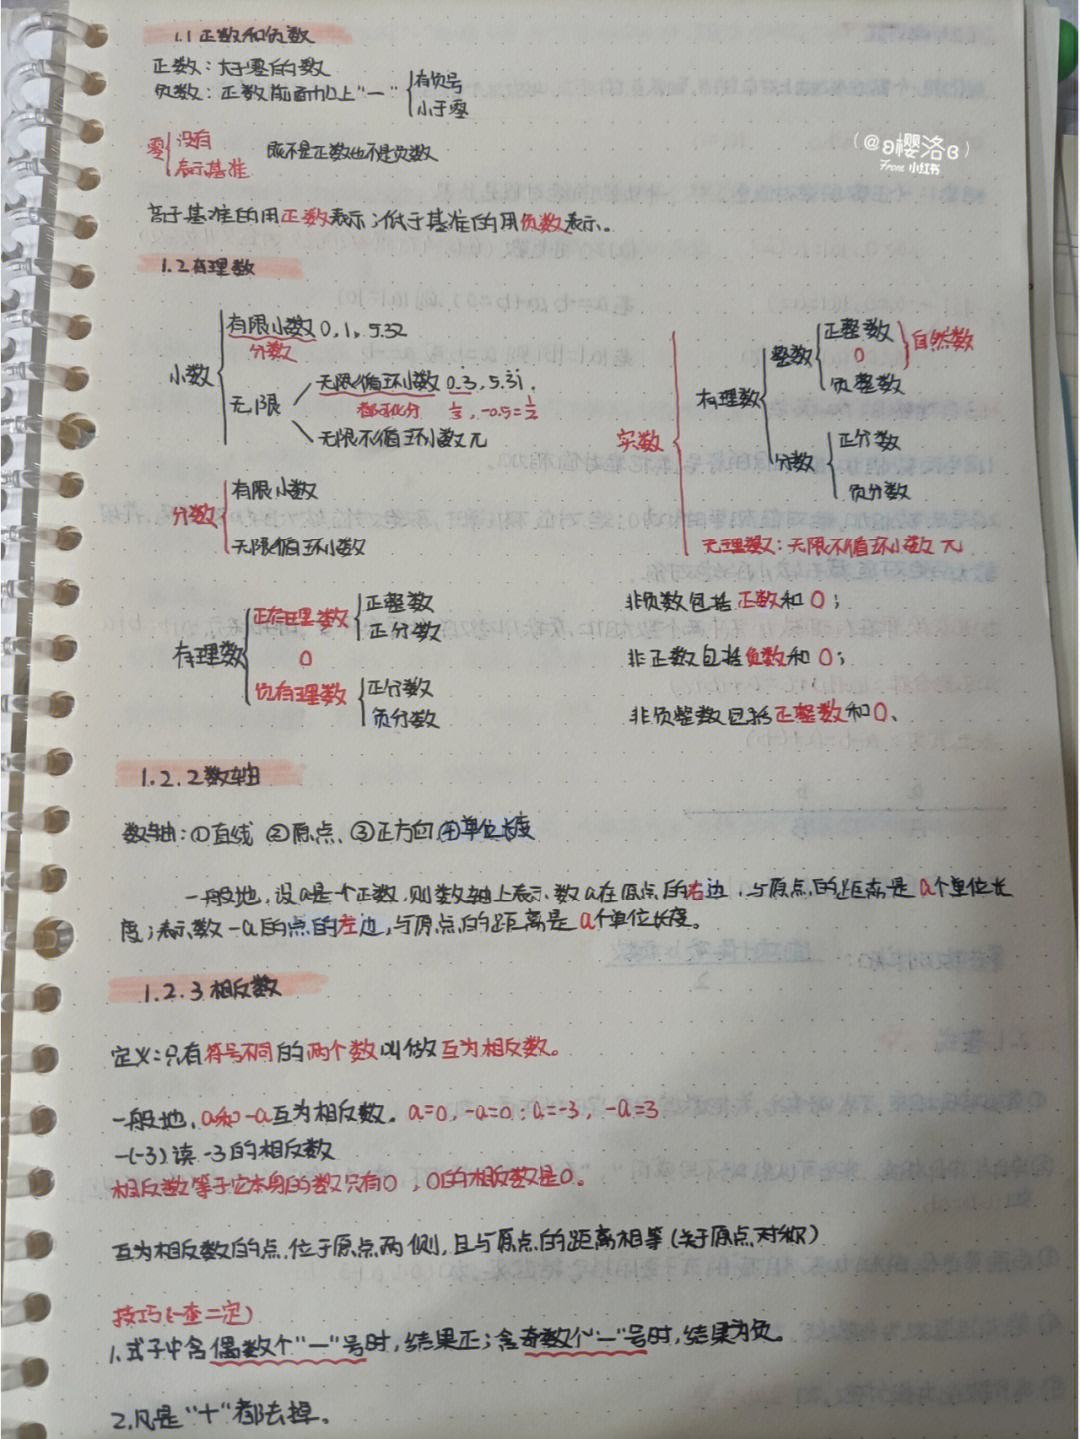 1.1 正数和负数
正数：大于零的数
负数：正数前面加上“一” 有负号
小于零
零 没有
表示基准
既不是正数也不是负数
(@a樱洛B)
From 小红书
高于基准的用正数表示；低于基准的用负数表示。
1.2有理数
小数
有限小数 0,1,5.32
分数
无限
无限循环小数 0.3,5.31.
都可化分 1/3, -0.5=1/2
无限不循环小数π
分数
有限小数
无限循环小数
实数
有理数
整数
正整数
0
负整数
自然数
分数
正分数
负分数
无理数：无限不循环小数 π
有理数
正有理数
正整数
正分数
0
负有理数
正分数
负分数
非负数包括正数和0；
非正数包括负数和0；
非负整数包括正整数和0、
1.2.2数轴
数轴：①直线 ②原点、③正方向④单位长度
一般地，设a是一个正数，则数轴上表示数a在原点的右边，与原点的距离是a个单位长
度；表示数-a的点的左边，与原点的距离是a个单位长度。
1.2.3相反数
定义：只有符号不同的两个数叫做互为相反数。
一般地，a和-a互为相反数。a=0,-a=0；a=-3，-a=3
-(-3)读-3的相反数
相反数等于它本身的数只有0，0的相反数是0。
互为相反数的点，位于原点两侧，且与原点的距离相等(关于原点对称)
技巧(一查二定)
1.式子中含偶数个“一”号时，结果正；含奇数个“一”号时，结果为负。
2.凡是“十”都去掉。